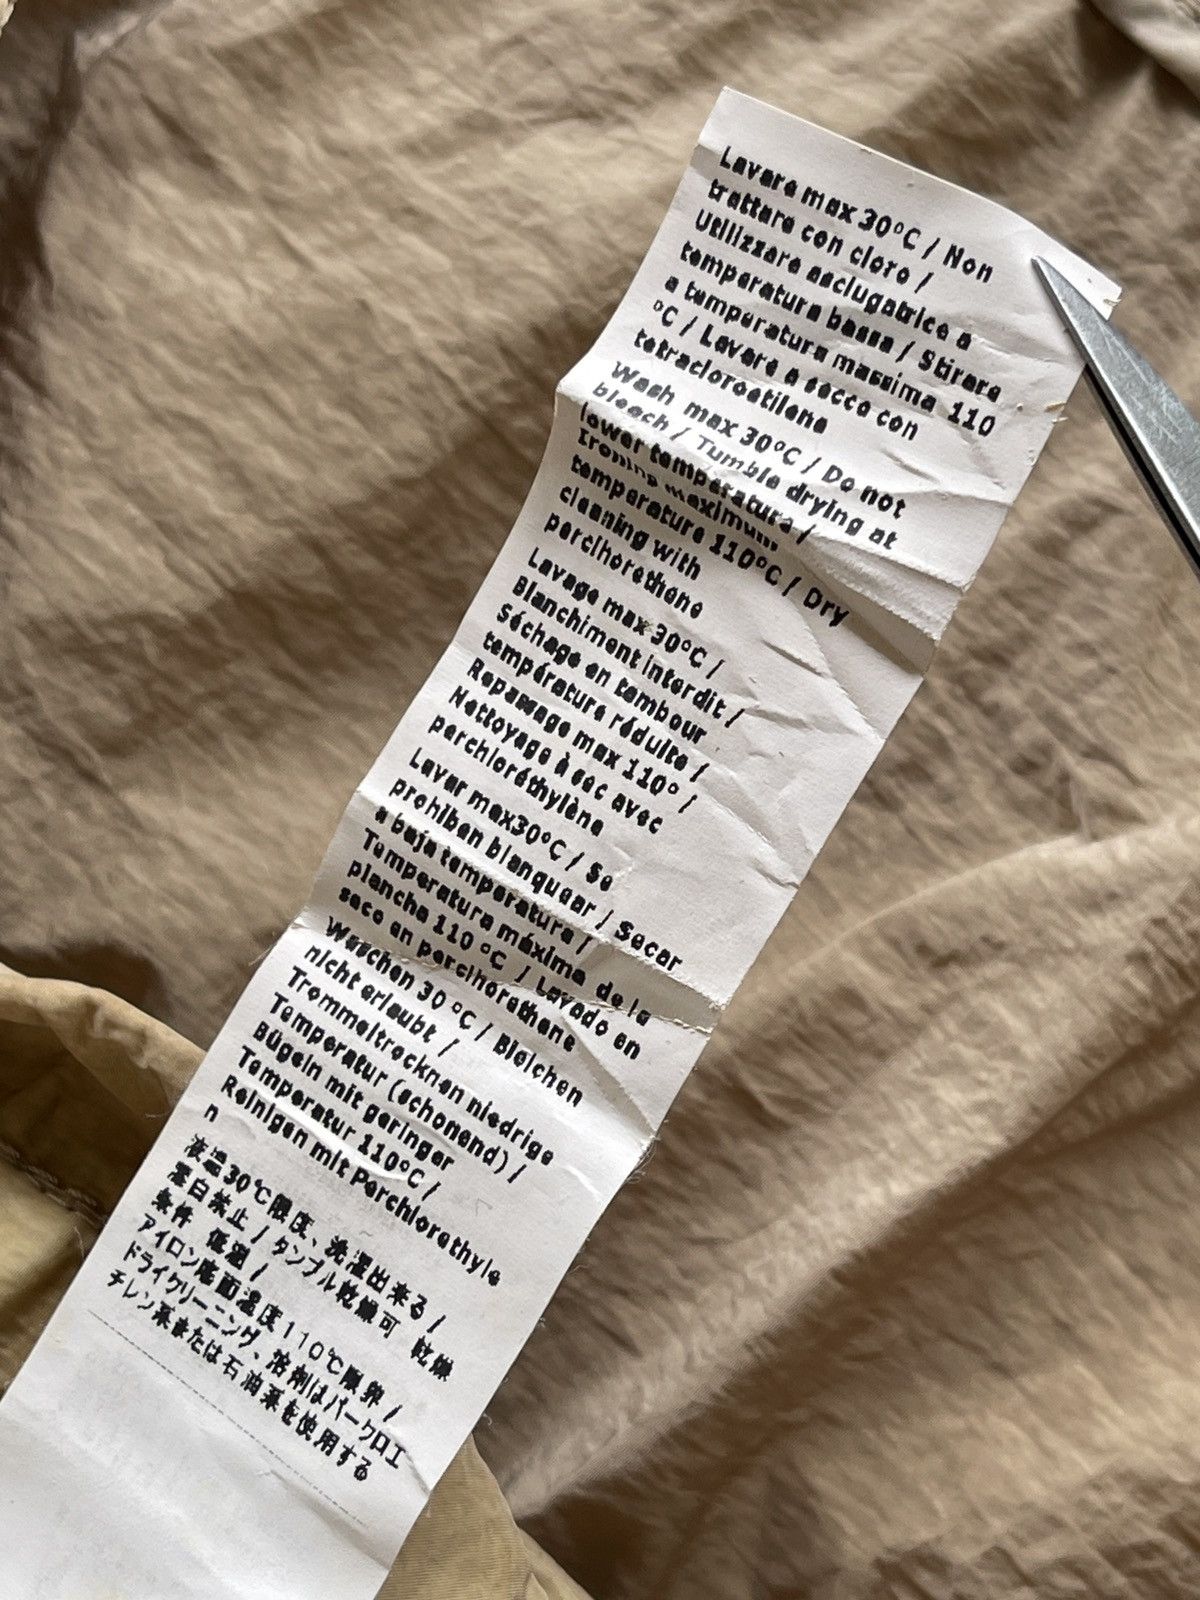 Lavare max 30°C / Non
trattare con cloro /
Utilizzare asciugatrice a
temperatura bassa / Stirare
a temperatura massima 110
°C / Lavare a secco con
tetracloroetilene
Wash max 30°C / Do not
bleach / Tumble drying at
lower temperature /
Ironing maximum
temperature 110°C / Dry
cleaning with
perclhorethene
Lavage max 30°C /
Blanchiment interdit /
Séchage en tambour
température réduite /
Repassage max 110° /
Nettoyage à sec avec
perchloréthylène
Lavar max30°C / Se
prohiben blanquear / Secar
a baja temperatura /
Temperatura máxima de la
plancha 110 °C / Lavado en
seco en perclhorethene
Waschen 30 °C / Bleichen
nicht erlaubt /
Trommeltrocknen niedrige
Temperatur (schonend) /
Bügeln mit geringer
Temperatur 110°C /
Reinigen mit Perchlorethyle
n
液温30℃限度、洗濯出来る /
漂白禁止 / タンブル乾燥可 乾燥
条件 低温 /
アイロン底面温度110℃限界 /
ドライクリーニング、溶剤はパークロエ
チレン系または石油系を使用する